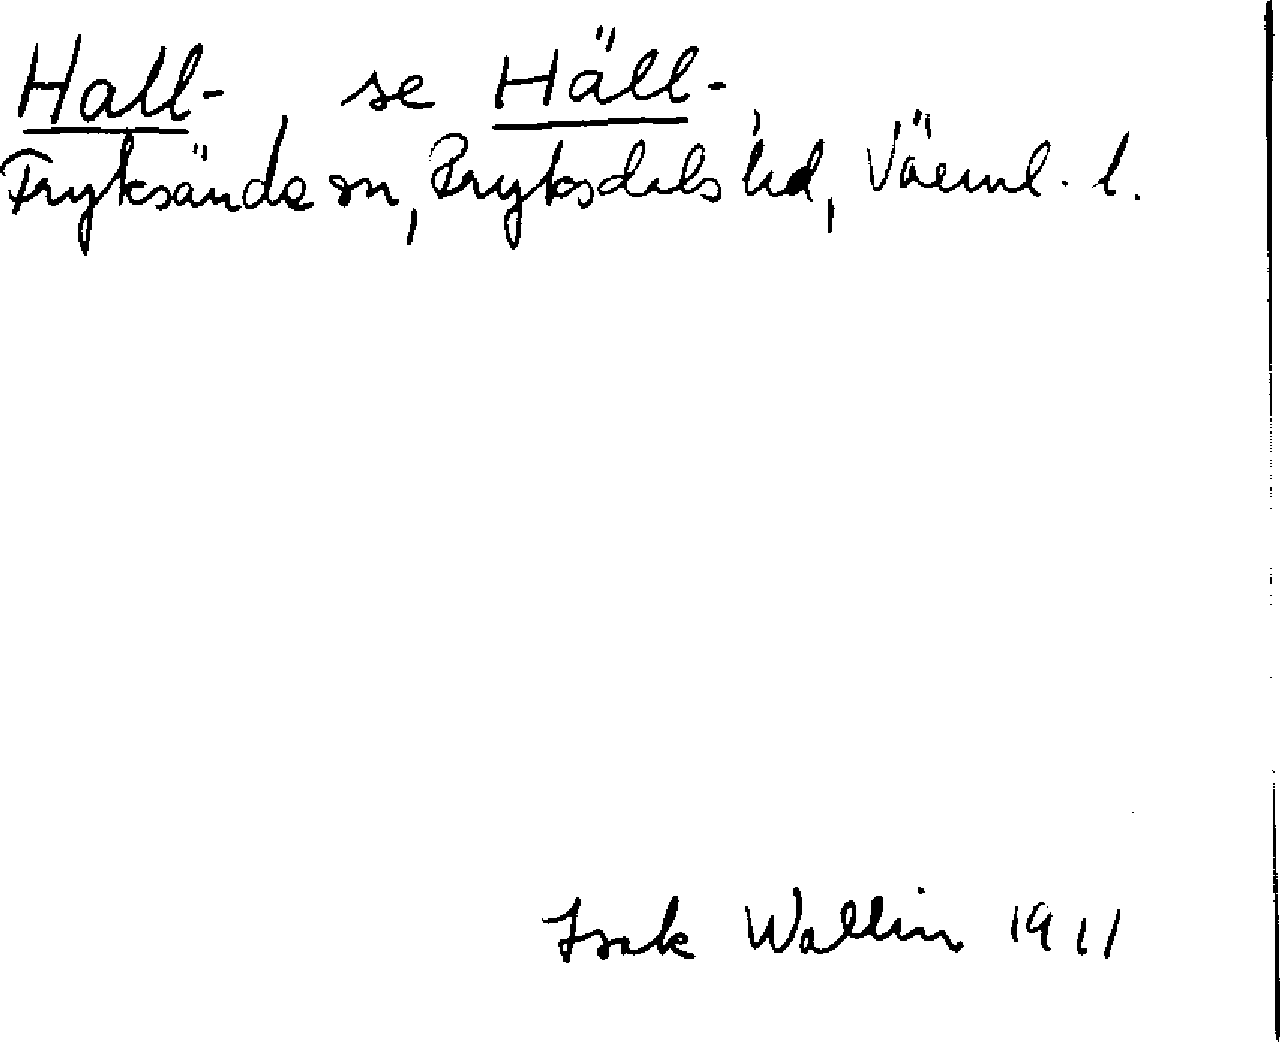 Hall- se Häll-
Fryksände sn, Fryksdals hd, Värml. l.
Isak Wallin 1911